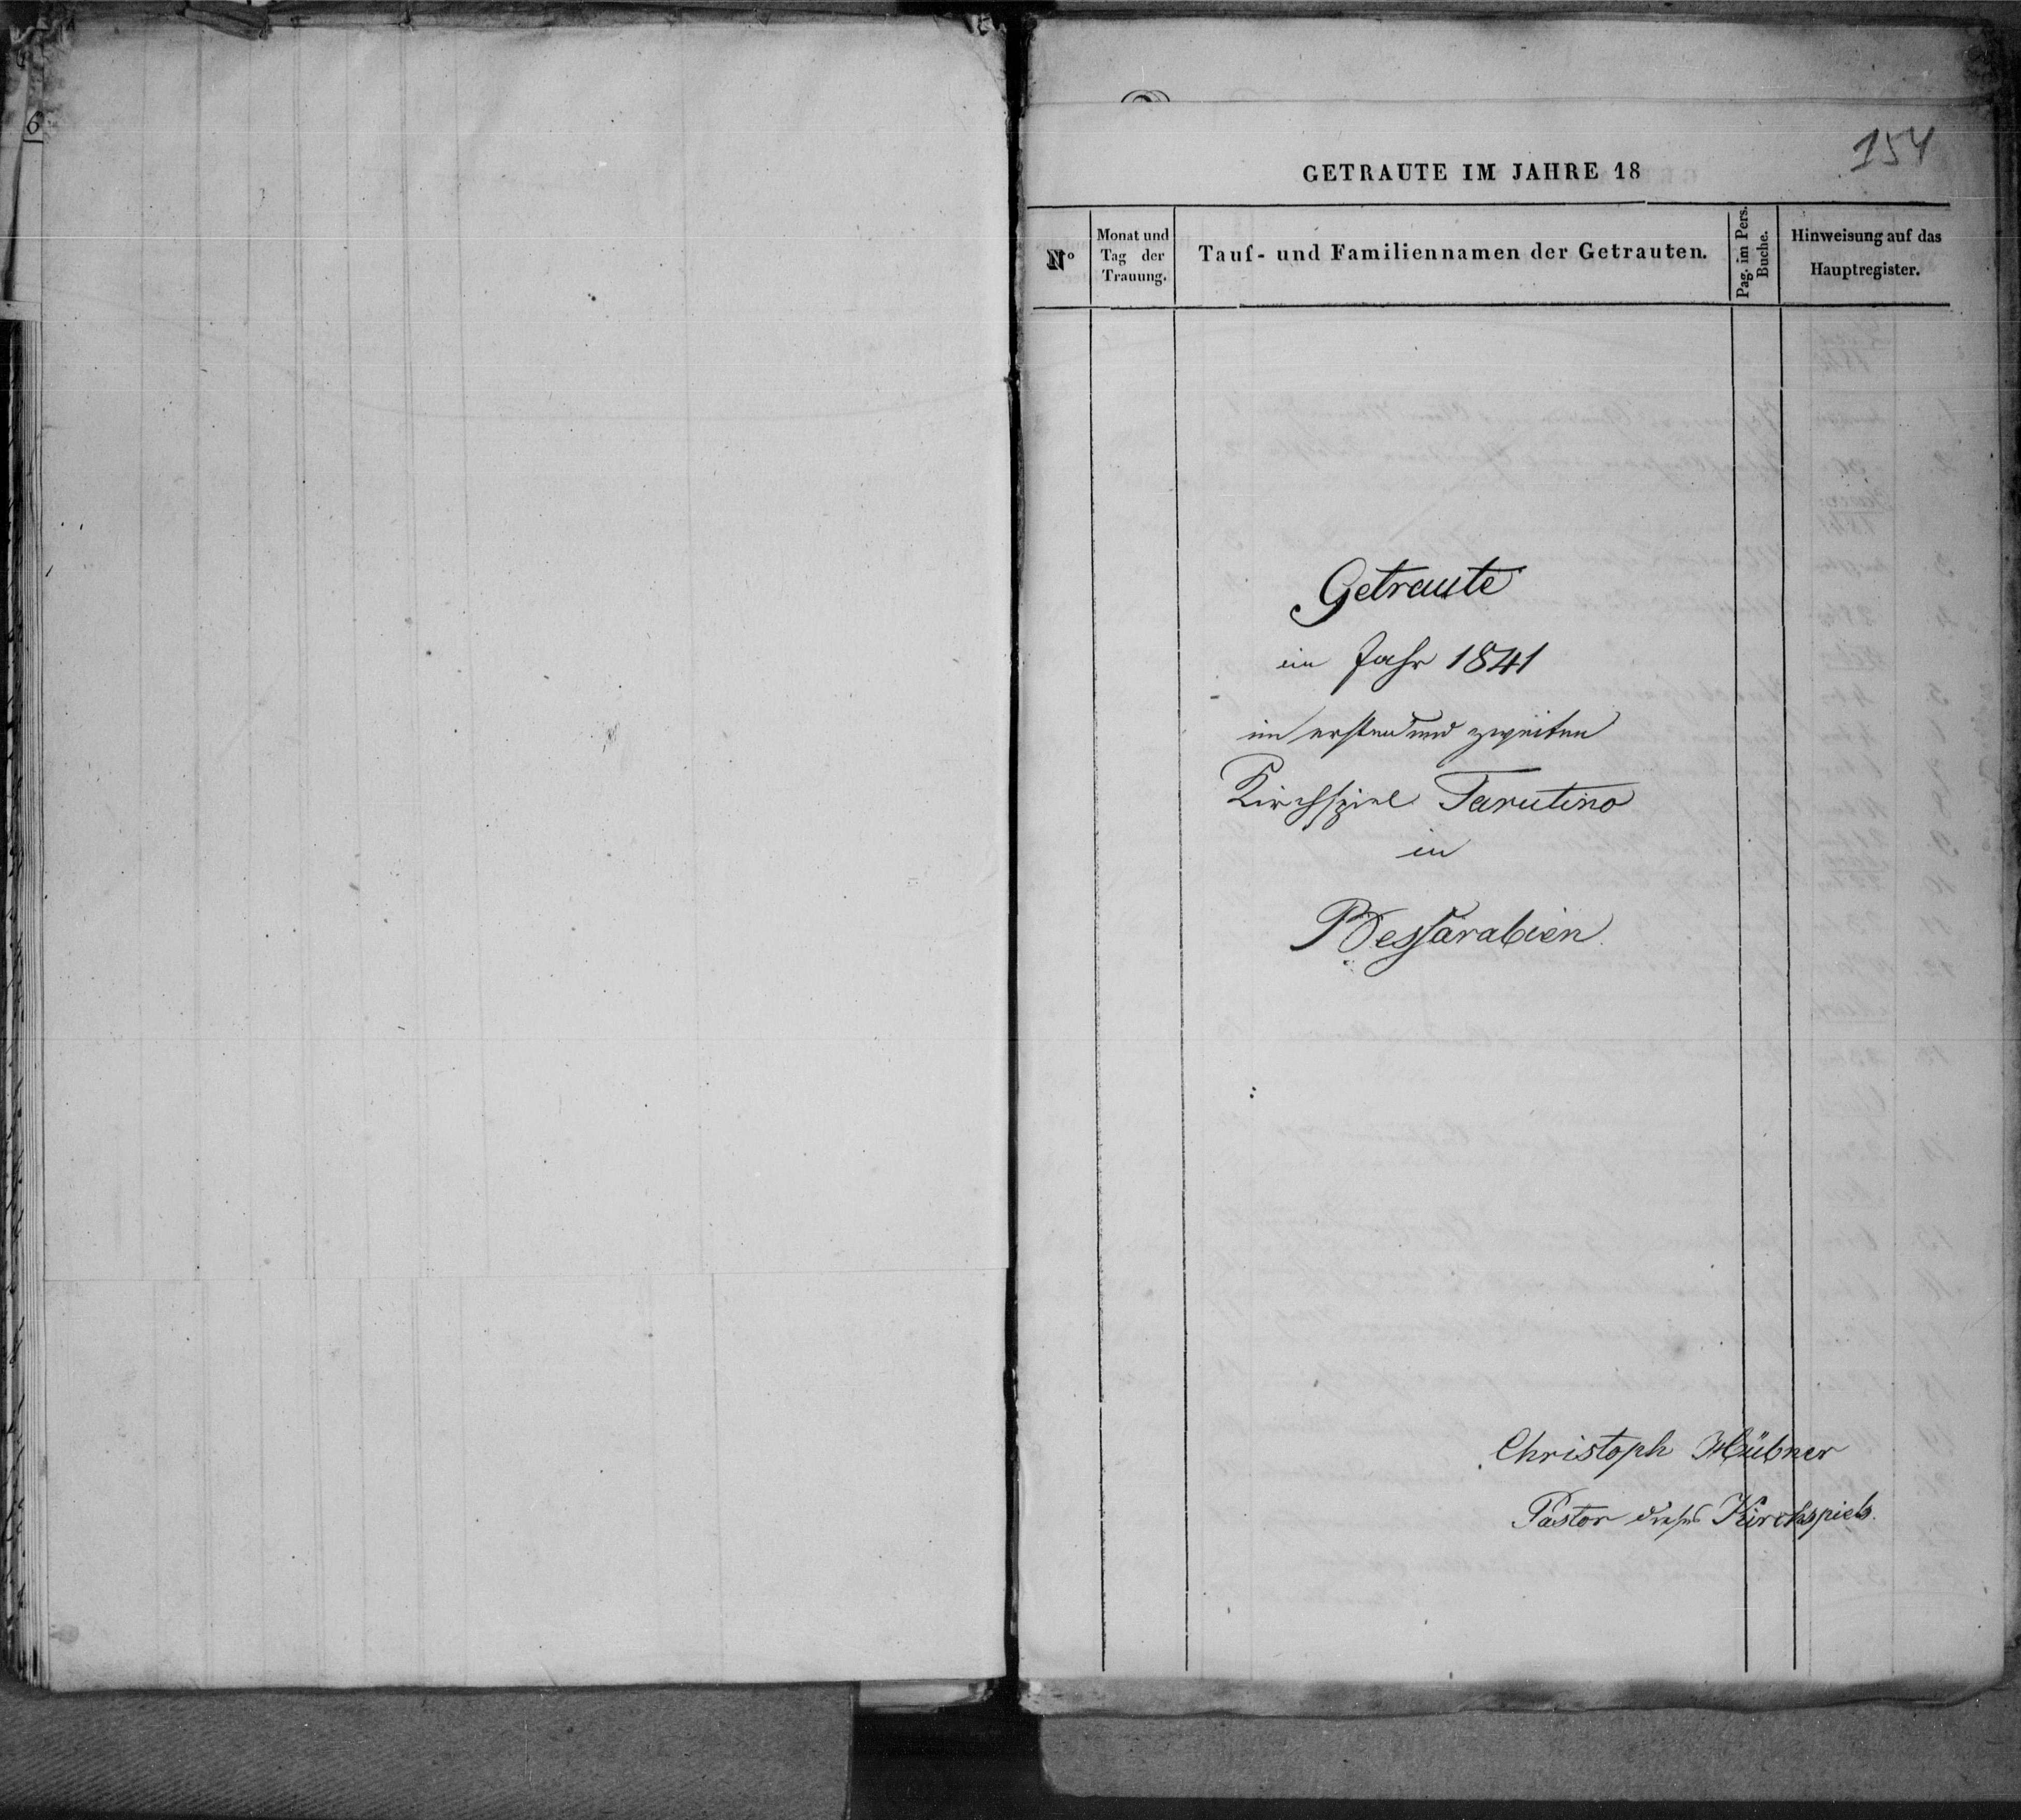 6
154
GETRAUTE IM JAHRE 18
N°
Monat und
Tag der
Trauung.
Tauf- und Familiennamen der Getrauten.
Pag. im Pers.
Buche.
Hinweisung auf das
Hauptregister.
Getraute
im Jahr 1841
im ersten und zweiten
Kirchspiel Tarutino
in
Bessarabien.
Christoph Hübner
Pastor dieses Kirchspiels.